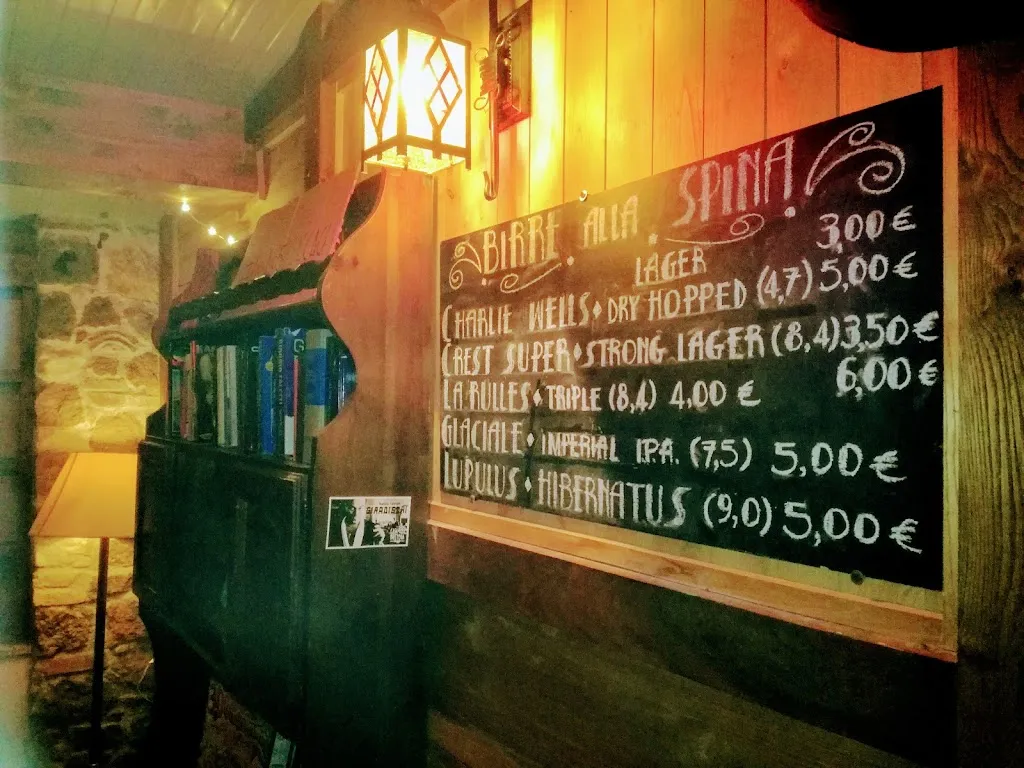 BIRRE ALLA SPINA
3,00 €
LAGER
CHARLIE WELLS • DRY HOPPED (4,7) 5,00 €
CREST SUPER • STRONG LAGER (8,4) 3,50 €
6,00 €
LA RULLES • TRIPLE (8,4) 4,00 €
GLACIALE • IMPERIAL I.P.A. (7,5) 5,00 €
LUPULUS • HIBERNATUS (9,0) 5,00 €